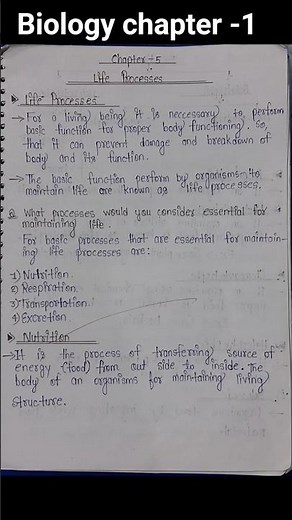 Biology chapter -1
Chapter-5
Life Processes
Life Processes
→ For a living being it is neccessary to perform
basic function for proper body functioning. So,
that it can prevent damage and breakdown of
body and its function.
→ The basic function perform by organisms to
maintain life are known as life processes.
Q What processes would you consider essential for
maintaining life.
For basic processes that are essential for maintain-
ing life processes are:
1) Nutrition.
2) Respiration.
3) Transportation.
4) Excretion
Nutrition
→ It is the process of transferring source of
energy (food) from out side to inside. The
body of an organisms for maintaining living
structure.